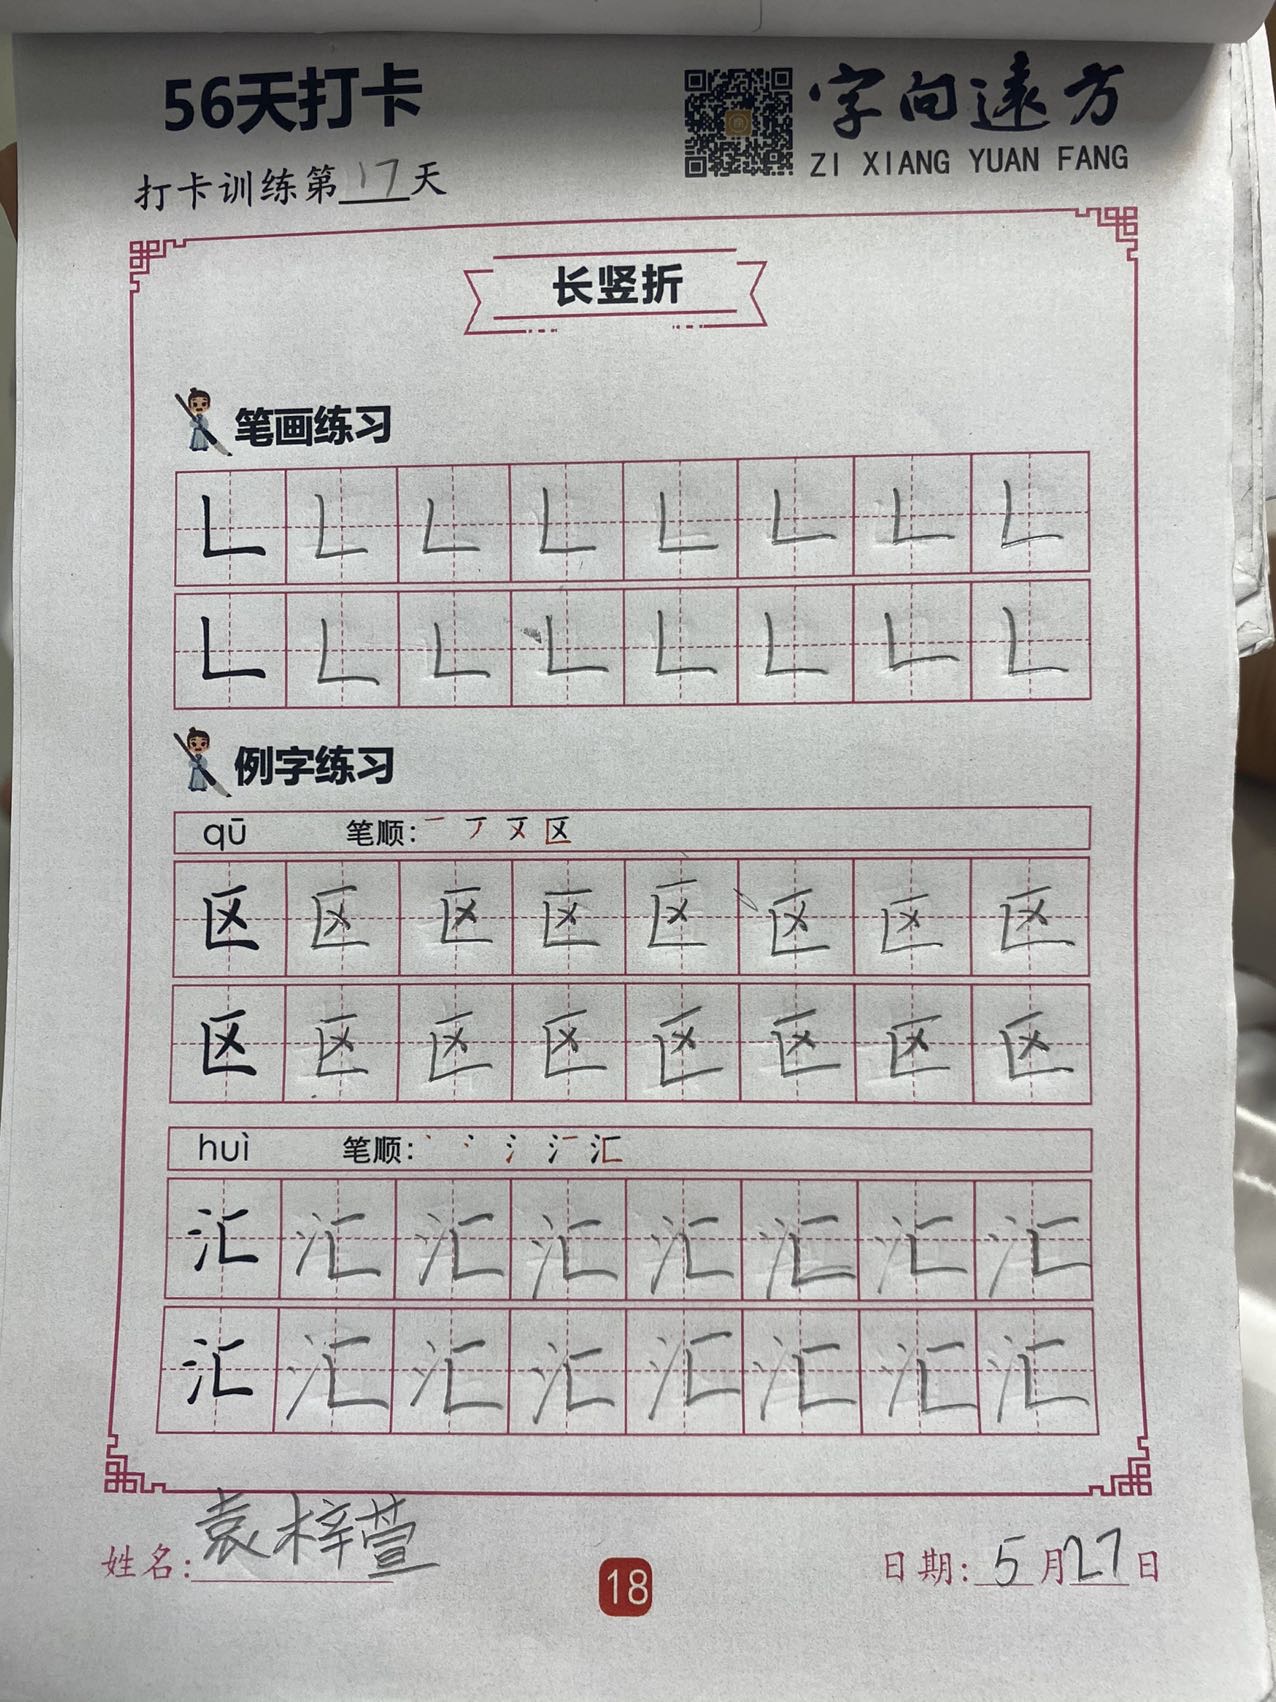 56天打卡
字向遠方
ZI XIANG YUAN FANG
打卡训练第17天
长竖折
笔画练习
𠃊 𠃊 𠃊 𠃊 𠃊 𠃊 𠃊 𠃊
𠃊 𠃊 𠃊 𠃊 𠃊 𠃊 𠃊 𠃊
例字练习
qū 笔顺: 区
区 区 区 区 区 区 区 区
区 区 区 区 区 区 区 区
huì 笔顺: 汇
汇 汇 汇 汇 汇 汇 汇 汇
汇 汇 汇 汇 汇 汇 汇 汇
姓名: 袁梓萱
18
日期: 5月27日